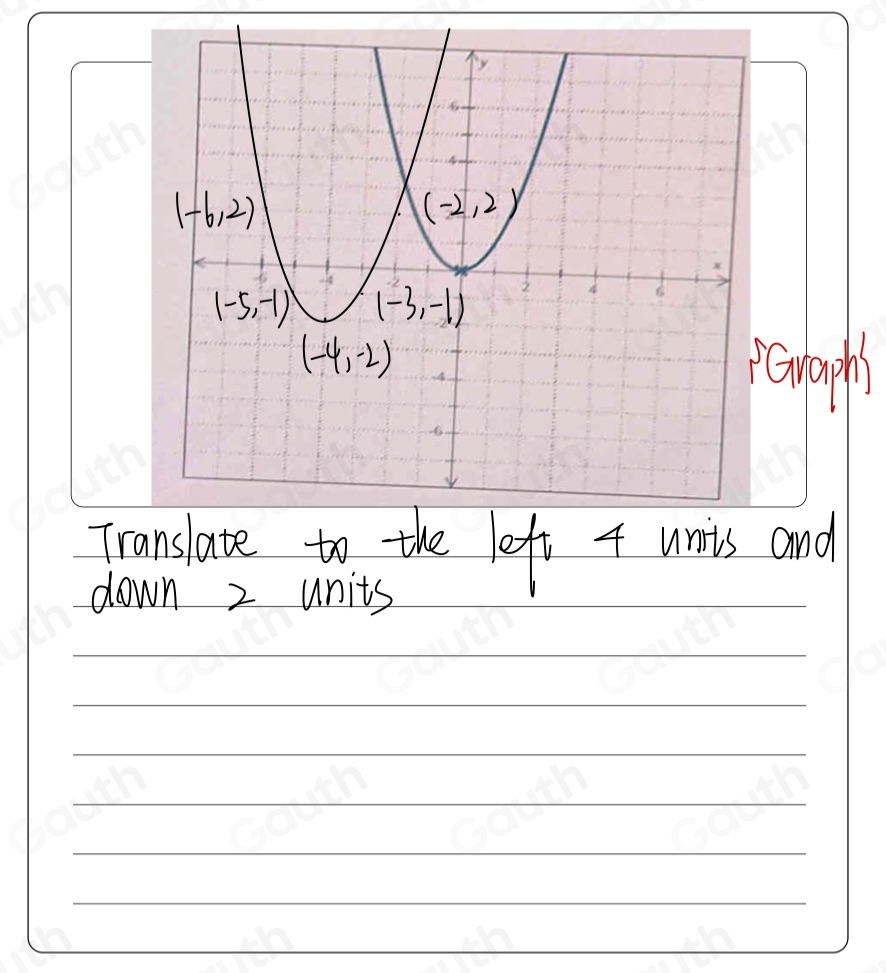 y
6
4
(-6,2)
(-2,2)
x
-6
-4
-2
2
4
6
(-5,-1)
(-3,-1)
-2
(-4,-2)
-4
-6
{Graph}
Translate to the left 4 units and
down 2 units
Gauth